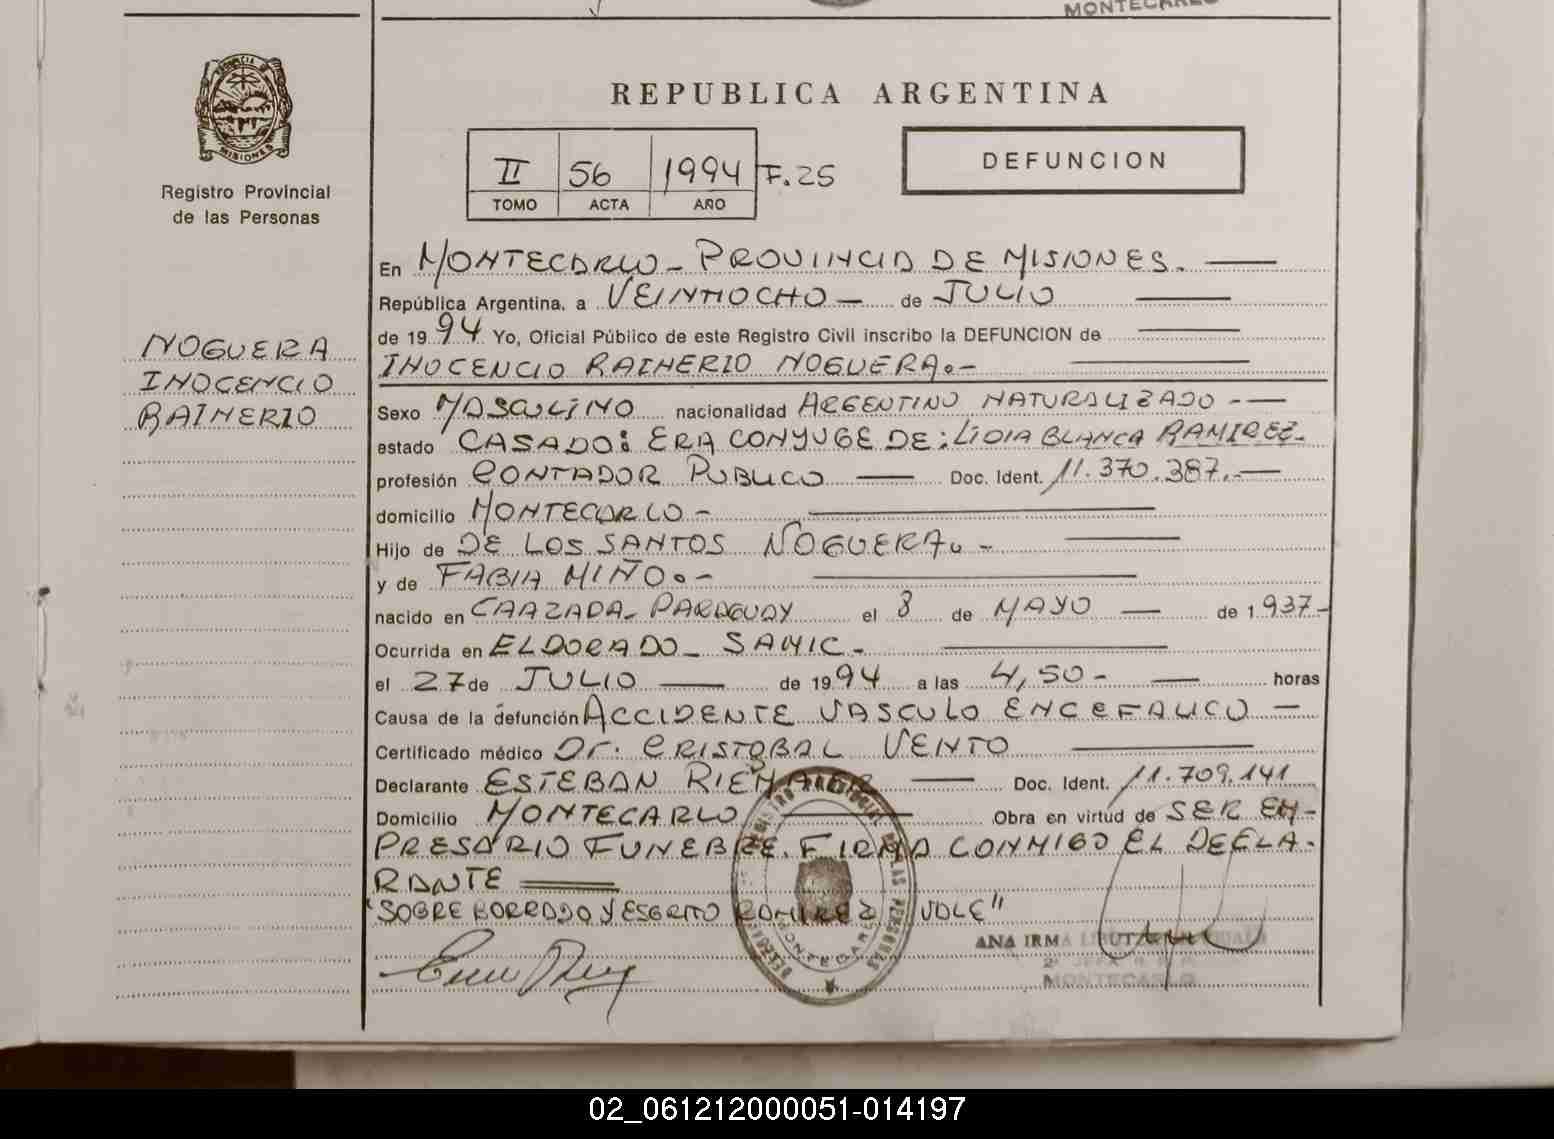 MONTECARLO
PROVINCIA DE
MISIONES
Registro Provincial
de las Personas
REPUBLICA ARGENTINA
II 56 1994 F.25
TOMO ACTA AÑO
DEFUNCION
NOGUERA
INOCENCIO
RAINERIO
En MONTECARLO - PROVINCIA DE MISIONES.
República Argentina, a VEINTIOCHO - de JULIO
de 19 94 Yo, Oficial Público de este Registro Civil inscribo la DEFUNCION de
INOCENCIO RAINERIO NOGUERA.-
Sexo MASCULINO nacionalidad ARGENTINO NATURALIZADO --
estado CASADO: ERA CONYUGE DE: LIDIA BLANCA RAMIREZ.
profesión CONTADOR PUBLICO Doc. Ident. 11.370.387.-
domicilio MONTECARLO -
Hijo de DE LOS SANTOS NOGUERA. -
y de FABIA MIÑO.-
nacido en CAAZADA- PARAGUAY el 3 de MAYO de 1.937-
Ocurrida en ELDORADO - SAMIC -
el 27 de JULIO de 19 94 a las 4,50 - horas
Causa de la defunción ACCIDENTE VASCULO ENCEFALICO -
Certificado médico Dr. CRISTOBAL VENTO
Declarante ESTEBAN Doc. Ident. 11.709.141
Domicilio MONTECARLO Obra en virtud de SER EM-
PRESARIO FUNEBRE. FIRMA CONMIGO EL DECLA-
RANTE
"SOBRE BORRADO Y ESCRITO RAMIREZ VALE"
REGISTRO PROVINCIAL DE LAS PERSONAS
MONTECARLO
ANA IRMA
MONTECARLO
02_061212000051-014197